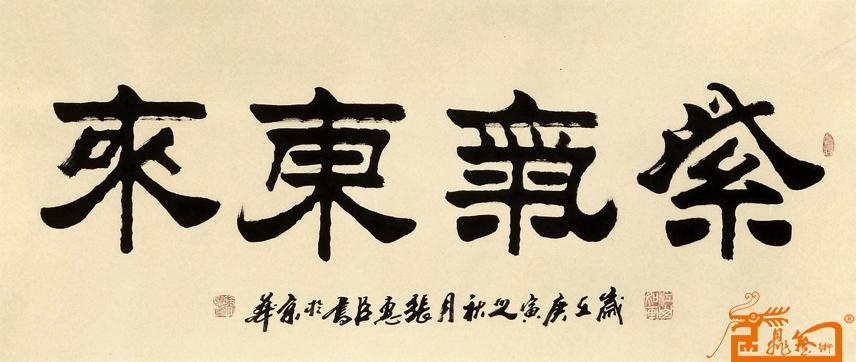 紫氣東來
歲在庚寅之秋月張惠臣書於京華